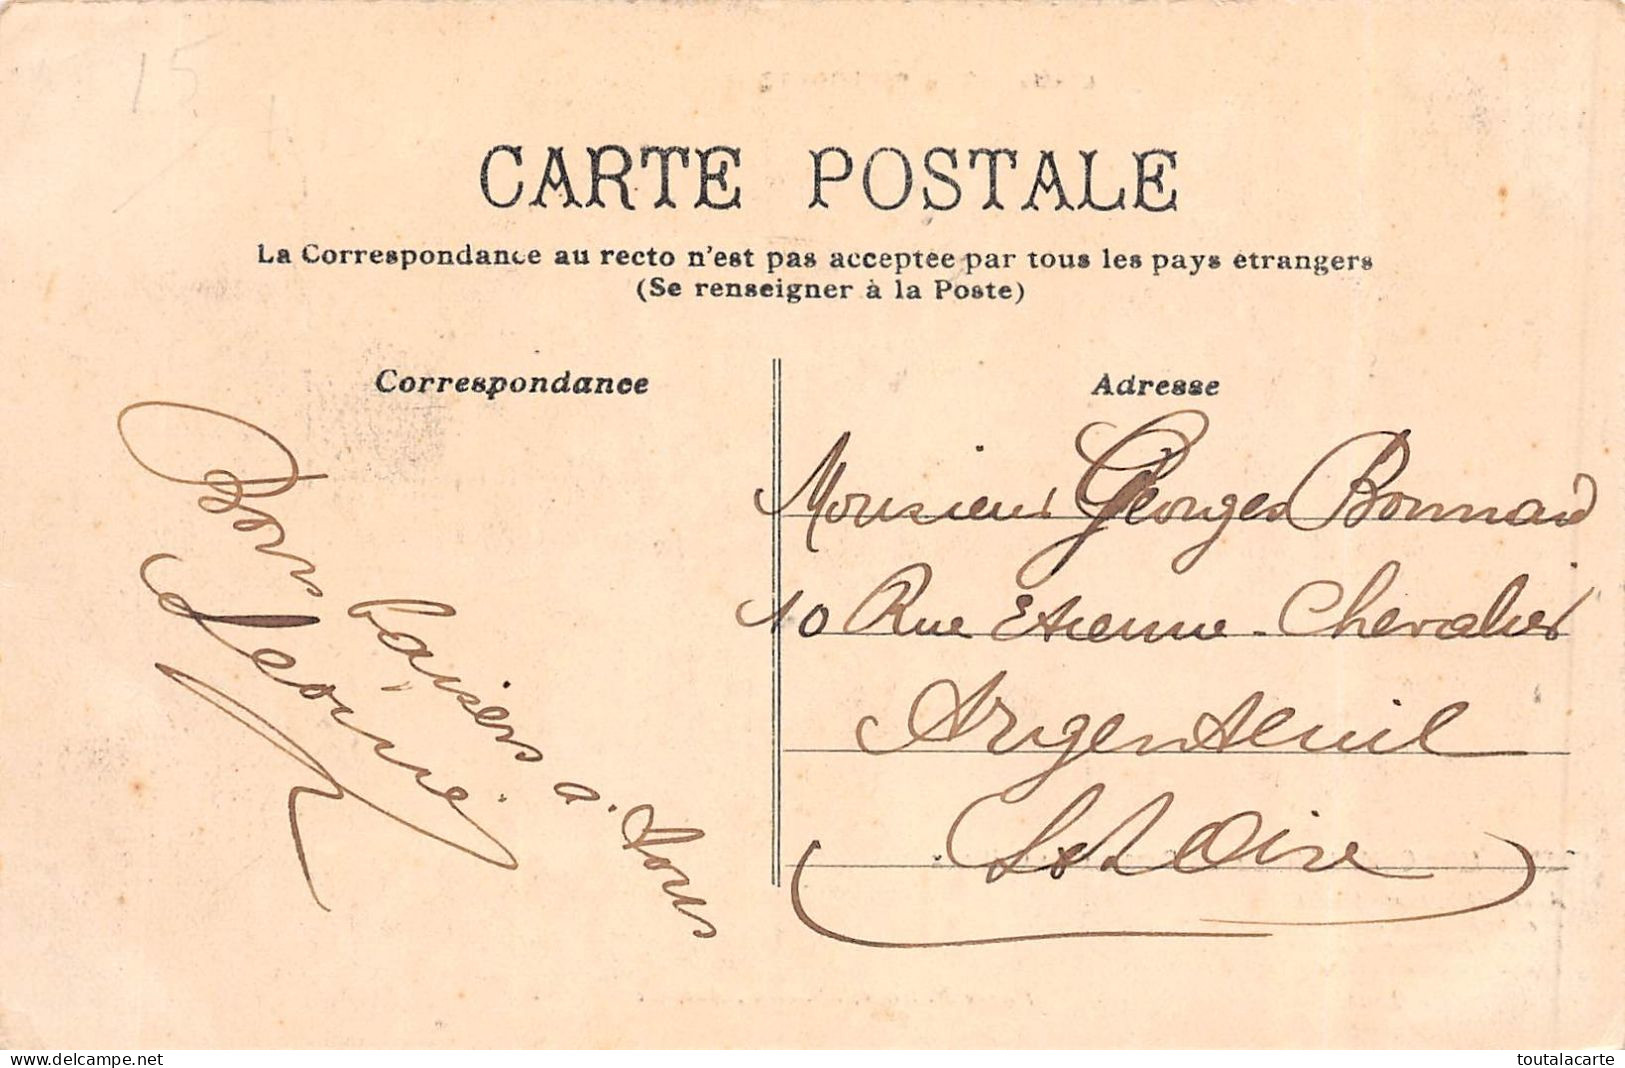 15
CARTE POSTALE
La Correspondance au recto n'est pas acceptée par tous les pays étrangers
(Se renseigner à la Poste)
Correspondance
Bons baisers à tous
Leonie
Adresse
Monsieur Georges Bonnard
10 Rue Etienne-Chevalier
Argenteuil
S et Oise
www.delcampe.net
toutalacarte